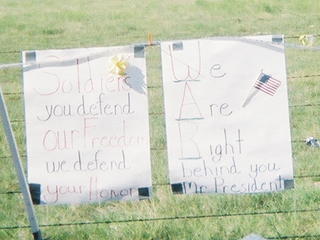 Soldiers
you defend
our Freedom
we defend
your Honor
We
Are
Right
behind you
Mr President